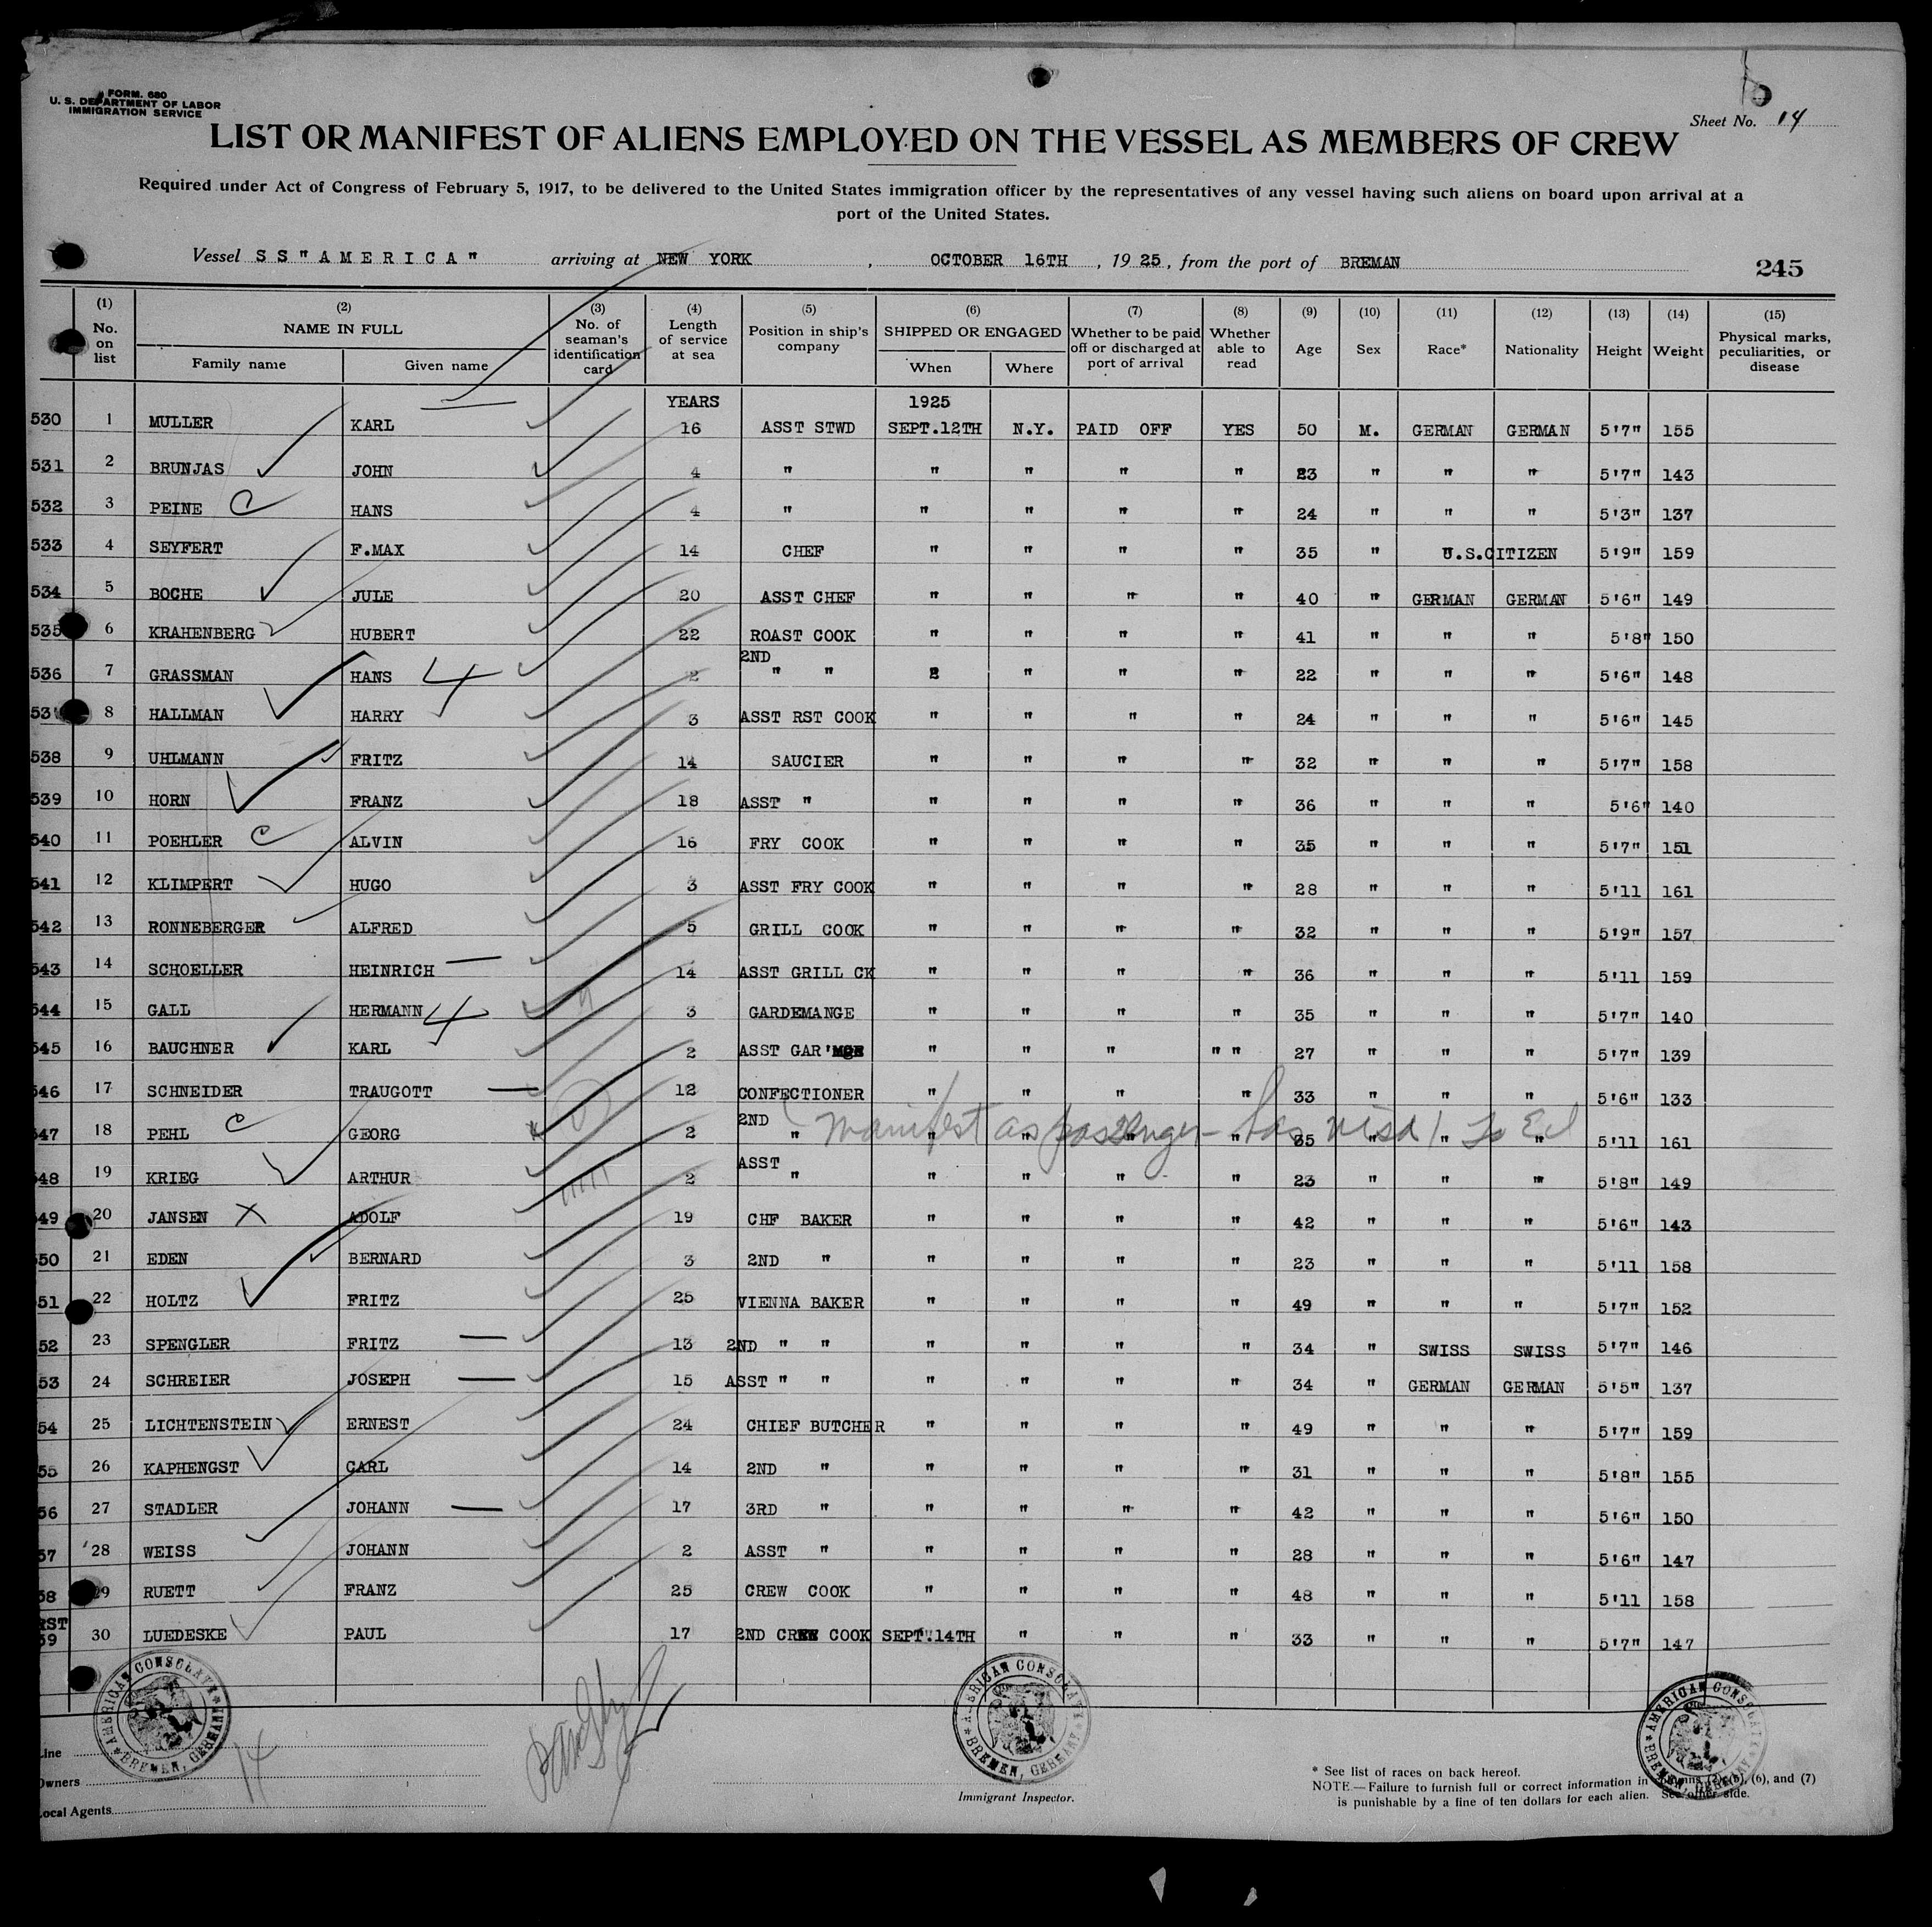 FORM. 680
U. S. DEPARTMENT OF LABOR
IMMIGRATION SERVICE
Sheet No. 14
LIST OR MANIFEST OF ALIENS EMPLOYED ON THE VESSEL AS MEMBERS OF CREW
Required under Act of Congress of February 5, 1917, to be delivered to the United States immigration officer by the representatives of any vessel having such aliens on board upon arrival at a
port of the United States.
Vessel SS"AMERICA" arriving at NEW YORK, OCTOBER 16TH, 1925, from the port of BREMAN 245
(1) No. on list (2) NAME IN FULL Family name Given name (3) No. of seaman's identification card (4) Length of service at sea (5) Position in ship's company (6) SHIPPED OR ENGAGED When Where (7) Whether to be paid off or discharged at port of arrival (8) Whether able to read (9) Age (10) Sex (11) Race* (12) Nationality (13) Height (14) Weight (15) Physical marks, peculiarities, or disease
YEARS 1925
530 1 MULLER KARL 16 ASST STWD SEPT.12TH N.Y. PAID OFF YES 50 M. GERMAN GERMAN 5'7" 155
531 2 BRUNJAS JOHN 4 " " " " " 23 " " " 5'7" 143
532 3 PEINE C HANS 4 " " " " " 24 " " " 5'3" 137
533 4 SEYFERT F.MAX 14 CHEF " " " " 35 " U.S.CITIZEN 5'9" 159
534 5 BOCHE JULE 20 ASST CHEF " " " " 40 " GERMAN GERMAN 5'6" 149
535 6 KRAHENBERG HUBERT 22 ROAST COOK " " " " 41 " " " 5'8" 150
536 7 GRASSMAN HANS 2 2ND " " " " " 22 " " " 5'6" 148
53 8 HALLMAN HARRY 3 ASST RST COOK " " " " 24 " " " 5'6" 145
538 9 UHLMANN FRITZ 14 SAUCIER " " " " 32 " " " 5'7" 158
539 10 HORN FRANZ 18 ASST " " " " " 36 " " " 5'6" 140
540 11 POEHLER C ALVIN 16 FRY COOK " " " " 35 " " " 5'7" 151
541 12 KLIMPERT HUGO 3 ASST FRY COOK " " " " 28 " " " 5'11 161
542 13 RONNEBERGER ALFRED 5 GRILL COOK " " " " 32 " " " 5'9" 157
543 14 SCHOELLER HEINRICH 14 ASST GRILL CK " " " " 36 " " " 5'11 159
544 15 GALL HERMANN 3 GARDEMANGE " " " " 35 " " " 5'7" 140
545 16 BAUCHNER KARL 2 ASST GAR'MGE " " " " " 27 " " " 5'7" 139
546 17 SCHNEIDER TRAUGOTT 12 CONFECTIONER " " " " 33 " " " 5'6" 133
manifest as passenger - has visa
547 18 PEHL C GEORG 2 2ND " " " " " 35 " " " 5'11 161
548 19 KRIEG ARTHUR 2 ASST " " " " " 23 " " " 5'8" 149
549 20 JANSEN X ADOLF 19 CHF BAKER " " " " 42 " " " 5'6" 143
550 21 EDEN BERNARD 3 2ND " " " " " 23 " " " 5'11 158
551 22 HOLTZ FRITZ 25 VIENNA BAKER " " " " 49 " " " 5'7" 152
52 23 SPENGLER FRITZ 13 2ND " " " " " " 34 " SWISS SWISS 5'7" 146
53 24 SCHREIER JOSEPH 15 ASST " " " " " " 34 " GERMAN GERMAN 5'5" 137
54 25 LICHTENSTEIN ERNEST 24 CHIEF BUTCHER " " " " 49 " " " 5'7" 159
55 26 KAPHENGST CARL 14 2ND " " " " " 31 " " " 5'8" 155
56 27 STADLER JOHANN 17 3RD " " " " " 42 " " " 5'6" 150
57 28 WEISS JOHANN 2 ASST " " " " " 28 " " " 5'6" 147
58 29 RUETT FRANZ 25 CREW COOK " " " " 48 " " " 5'11 158
RST
59 30 LUEDESKE PAUL 17 2ND CREW COOK SEPT.14TH " " " 33 " " " 5'7" 147
AMERICAN CONSULATE BREMEN, GERMANY
AMERICAN CONSULATE BREMEN, GERMANY
AMERICAN CONSULATE BREMEN, GERMANY
Line
Owners
Local Agents
14
Immigrant Inspector.
* See list of races on back hereof.
NOTE.—Failure to furnish full or correct information in columns (2), (5), (6), and (7)
is punishable by a fine of ten dollars for each alien. See other side.